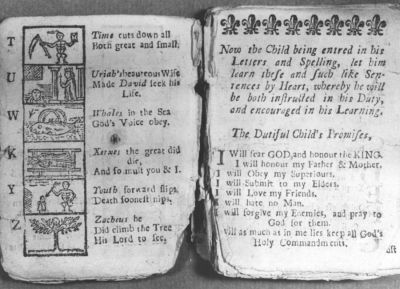 T
Time cuts down all
Both great and small;
U
Uriah's beauteous Wife
Made David seek his
Life.
W
Whales in the Sea
God's Voice obey.
K
Xerxes the great did
die,
And so must you & I.
Y
Youth forward slips,
Death soonest nips,
Z
Zacheus he
Did climb the Tree
His Lord to see,
Now the Child being entred in his
Letters and Spelling, let him
learn these and such like Sen-
tences by Heart, whereby he will
be both instructed in his Duty,
and encouraged in his Learning.
The Dutiful Child's Promises,
I Will fear GOD, and honour the KING.
I will honour my Father & Mother,
I will Obey my Superiours.
I will Submit to my Elders.
I will Love my Friends.
I will hate no Man.
I will forgive my Enemies, and pray to
God for them.
will as much as in me lies keep all God's
Holy Commandments.